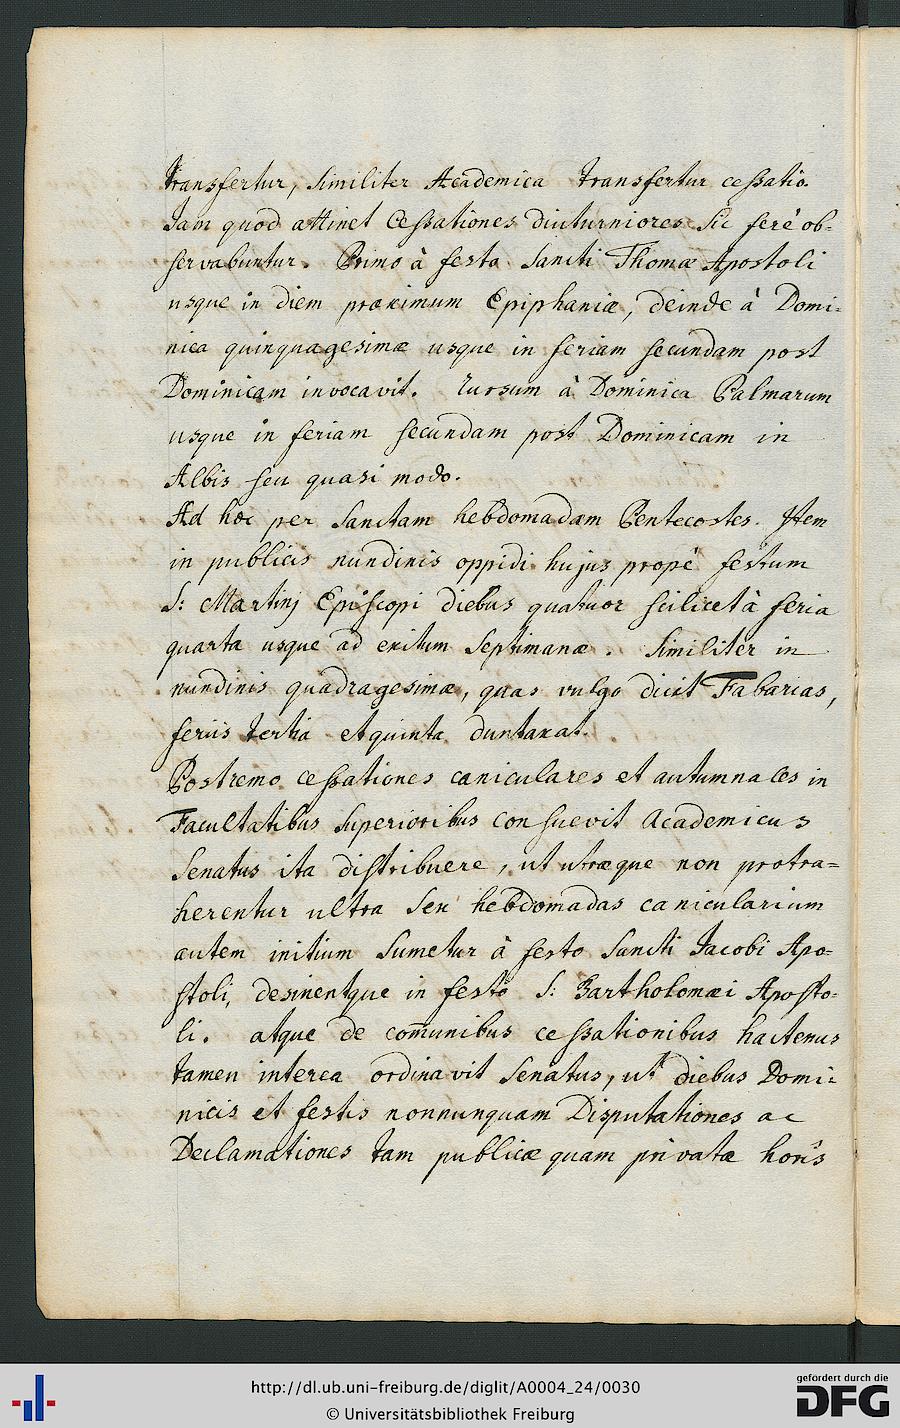 transfertur, similiter Academica transfertur ceßatio.
Jam quod attinet Ceßationes diuturniores sic ferè ob-
servabuntur. Primo à festo Sancti Thomæ Apostoli
usque in diem proximum Epiphaniæ, deinde à Domi-
nica quinquagesimæ usque in feriam secundam post
Dominicam invocavit. rursum à Dominica Palmarum
usque in feriam secundam post Dominicam in
Albis seu quasi modo.
Ad hæc per Sanctam hebdomadam Pentecostes. Item
in publicis nundinis oppidi hujus propè festum
S: Martinj Episcopi diebus quatuor scilicet à feria
quarta usque ad exitum Septimanæ. Similiter in
nundinis quadragesimæ, quas vulgo dicit Fabarias,
feriis tertia et quinta duntaxat.
Postremo ceßationes caniculares et autumnales in
Facultatibus superioribus consuevit Academicus
Senatus ita distribuere, ut utræque non protra=
herentur ultra sex hebdomadas canicularium
autem initium sumetur à festo Sancti Jacobi Apo=
stoli, desinentque in festo S: Bartholomæi Aposto=
li. atque de com̄unibus ceßationibus hactenus
tamen interea ordinavit Senatus, ut diebus Domi=
nicis et festis nonnunquam Disputationes ac
Declamationes tam publicæ quam privatæ horis
http://dl.ub.uni-freiburg.de/diglit/A0004_24/0030
© Universitätsbibliothek Freiburg
gefördert durch die
DFG